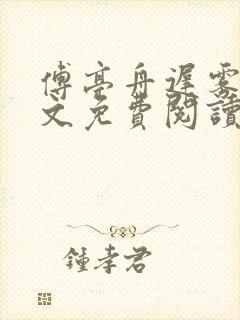 傅亭舟遲霧
文免費閱讀
鍾孝君